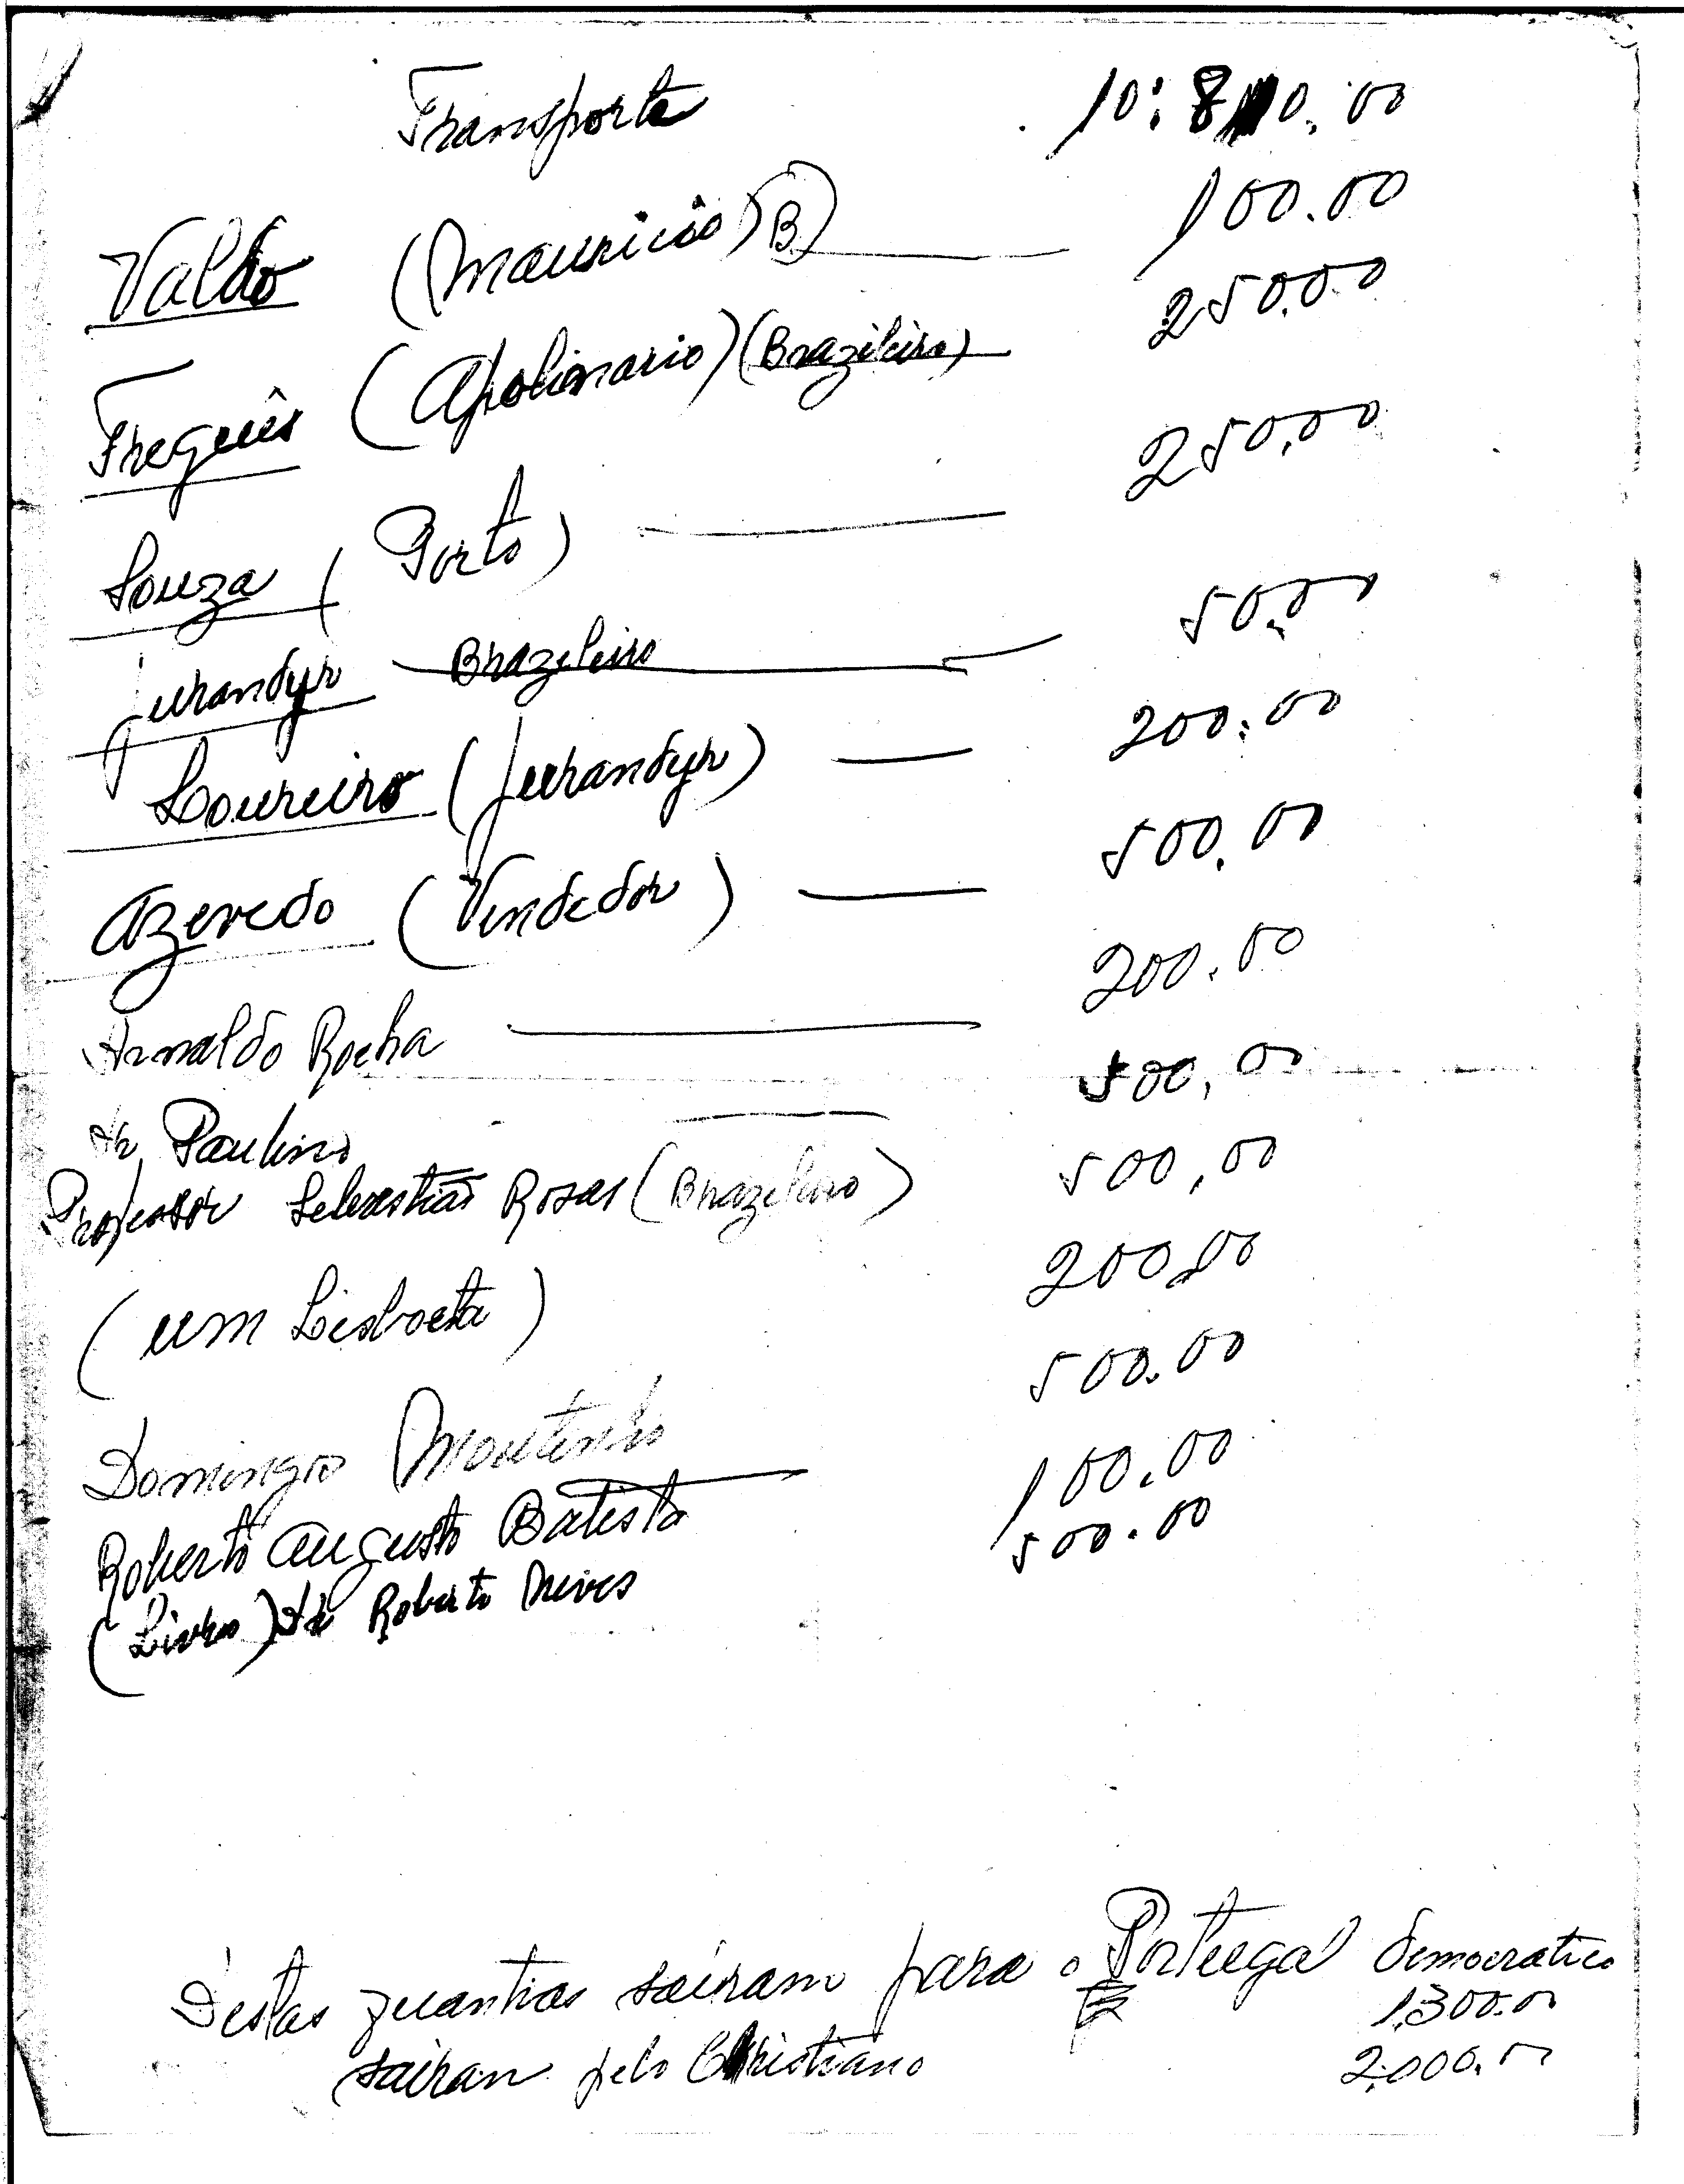 Transporte 10:810.00
Valdo (Mauricio) (B) 100.00
Freguês (Apolinario) (Brazileiro) 250.00
Souza (Porto) 250.00
Jurandyr Brazileiro 50.00
Loureiro (Jurandyr) 200.00
Azevedo (Vendedor) 500.00
Arnaldo Rocha 200.00
Sr Paulino 500,00
Professor Sebastião Rosas (Brazileiro) 500,00
(um Lisboeta) 200,00
Domingos Moutinho 500.00
Roberto Augusto Batista 100.00
(Livros) de Roberto Neves 500.00
Destas quantias sairam para o Portugal democratico
1.300.00
sairan pelo Christiano 2.000.00